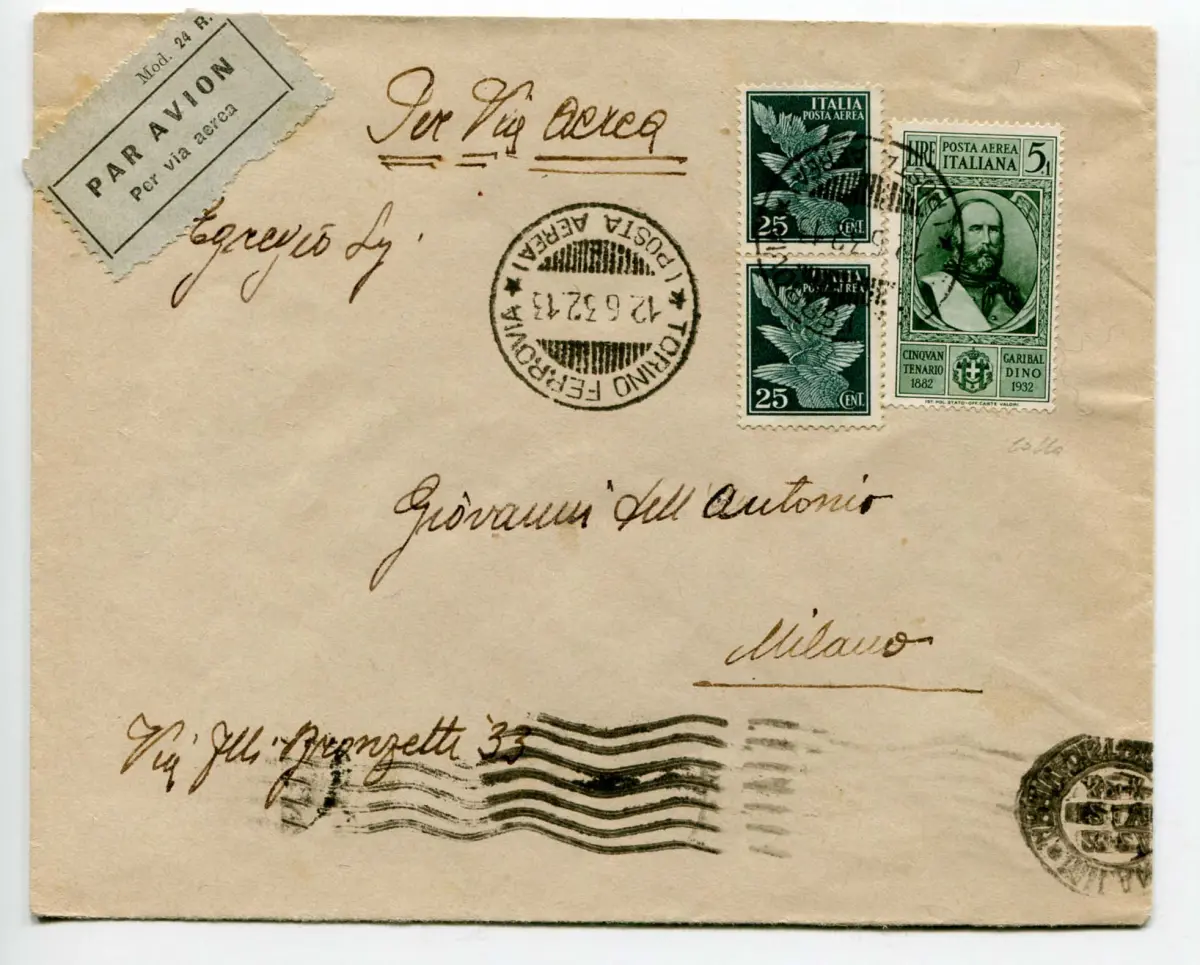 Mod. 24 R.
PAR AVION
Per via aerea
Per Via aerea
ITALIA
POSTA AEREA
25 CENT.
ITALIA
POSTA AEREA
25 CENT.
LIRE POSTA AEREA ITALIANA 5
CINQVANTENARIO 1882
GARIBALDINO 1932
IST. POL. STATO-OFF. CARTE VALORI
Egregio Sig.
TORINO FERROVIA
(POSTA AEREA)
12.6.32.13
Giovanni dell'Antonio
Milano
Via Flli Bronzetti 33